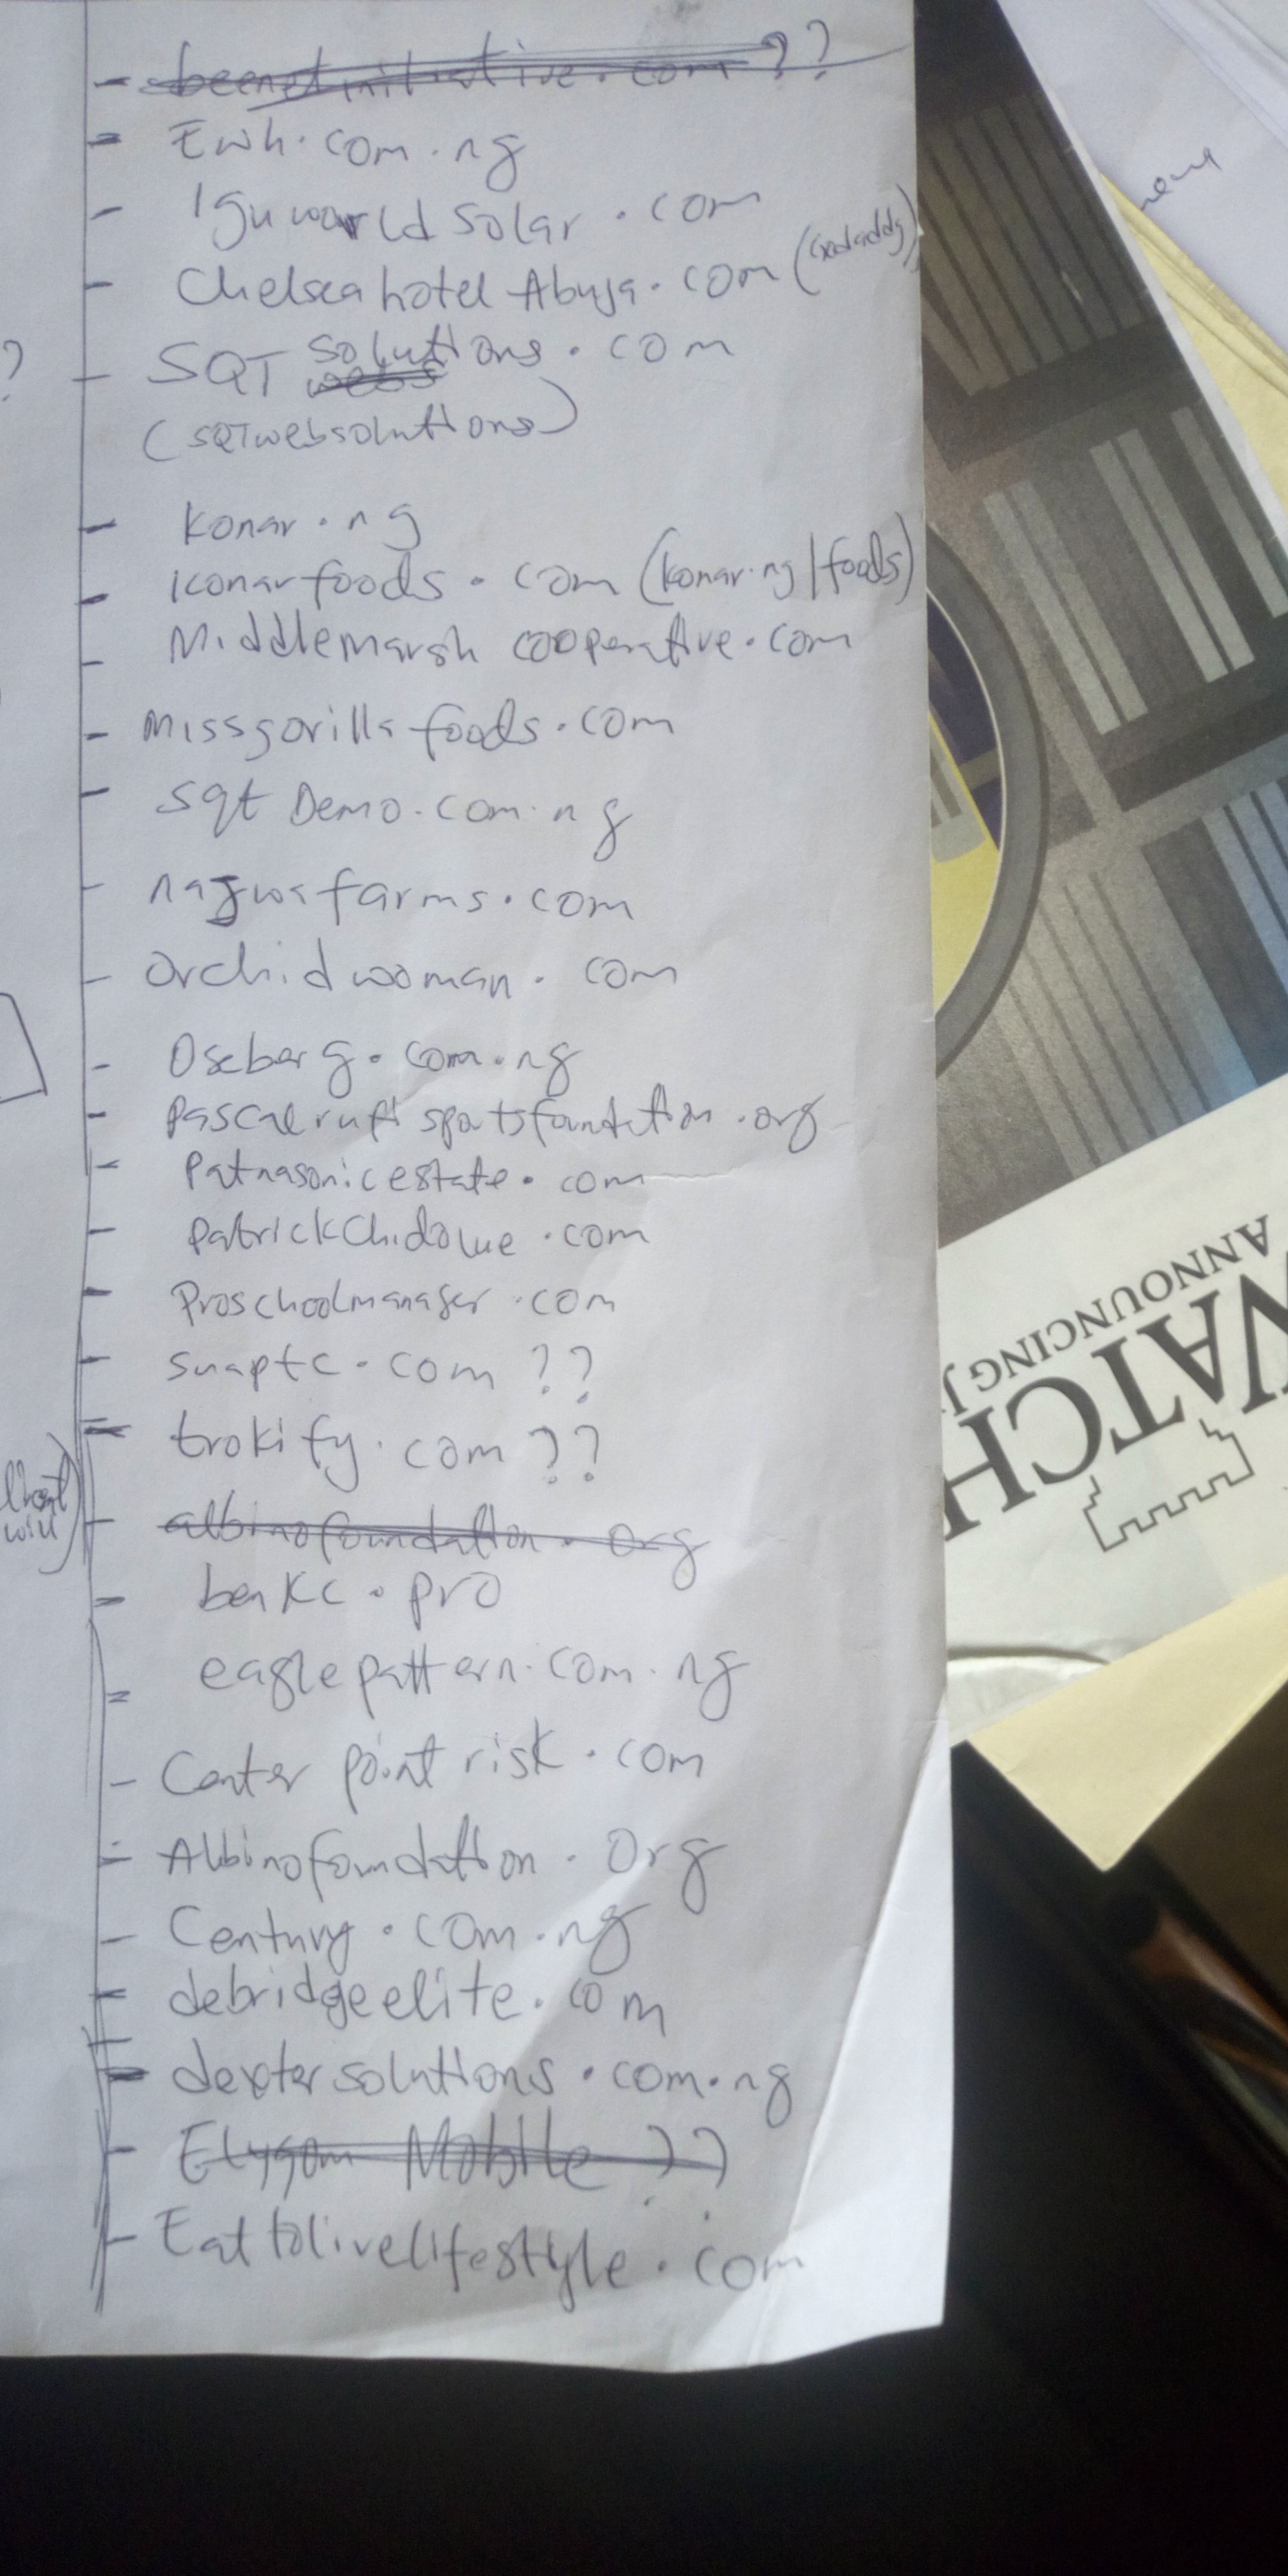 - beenetinitiative.com ??
- Ewh.com.ng
- Iguworldsolar.com
- Chelsea hotel Abuja.com (Godaddy)
- SQT solutions.com
webs
(SQTwebsolutions)
- Konar.ng
- iconarfoods.com (konar.ng/foods)
- Middlemarsh cooperative.com
- Missgorillafoods.com
- Sqt Demo.com.ng
- nagwafarms.com
- Orchidwoman.com
- Oseberg.com.ng
- Pascal sportsfoundation.org
- Patnasonicestate.com
- PatrickChidolue.com
- Proschoolmanager.com
- snaptc.com ??
- trokify.com ??
- albinofoundation.org
- benkc.pro
= eaglepattern.com.ng
- Center point risk.com
- Albinofoundation.Org
- Century.com.ng
- debridgeelite.com
- dextersolutions.com.ng
- Mobile ??
- Eattolivelifestyle.com
?
will)
WATCH
ANNOUNCING